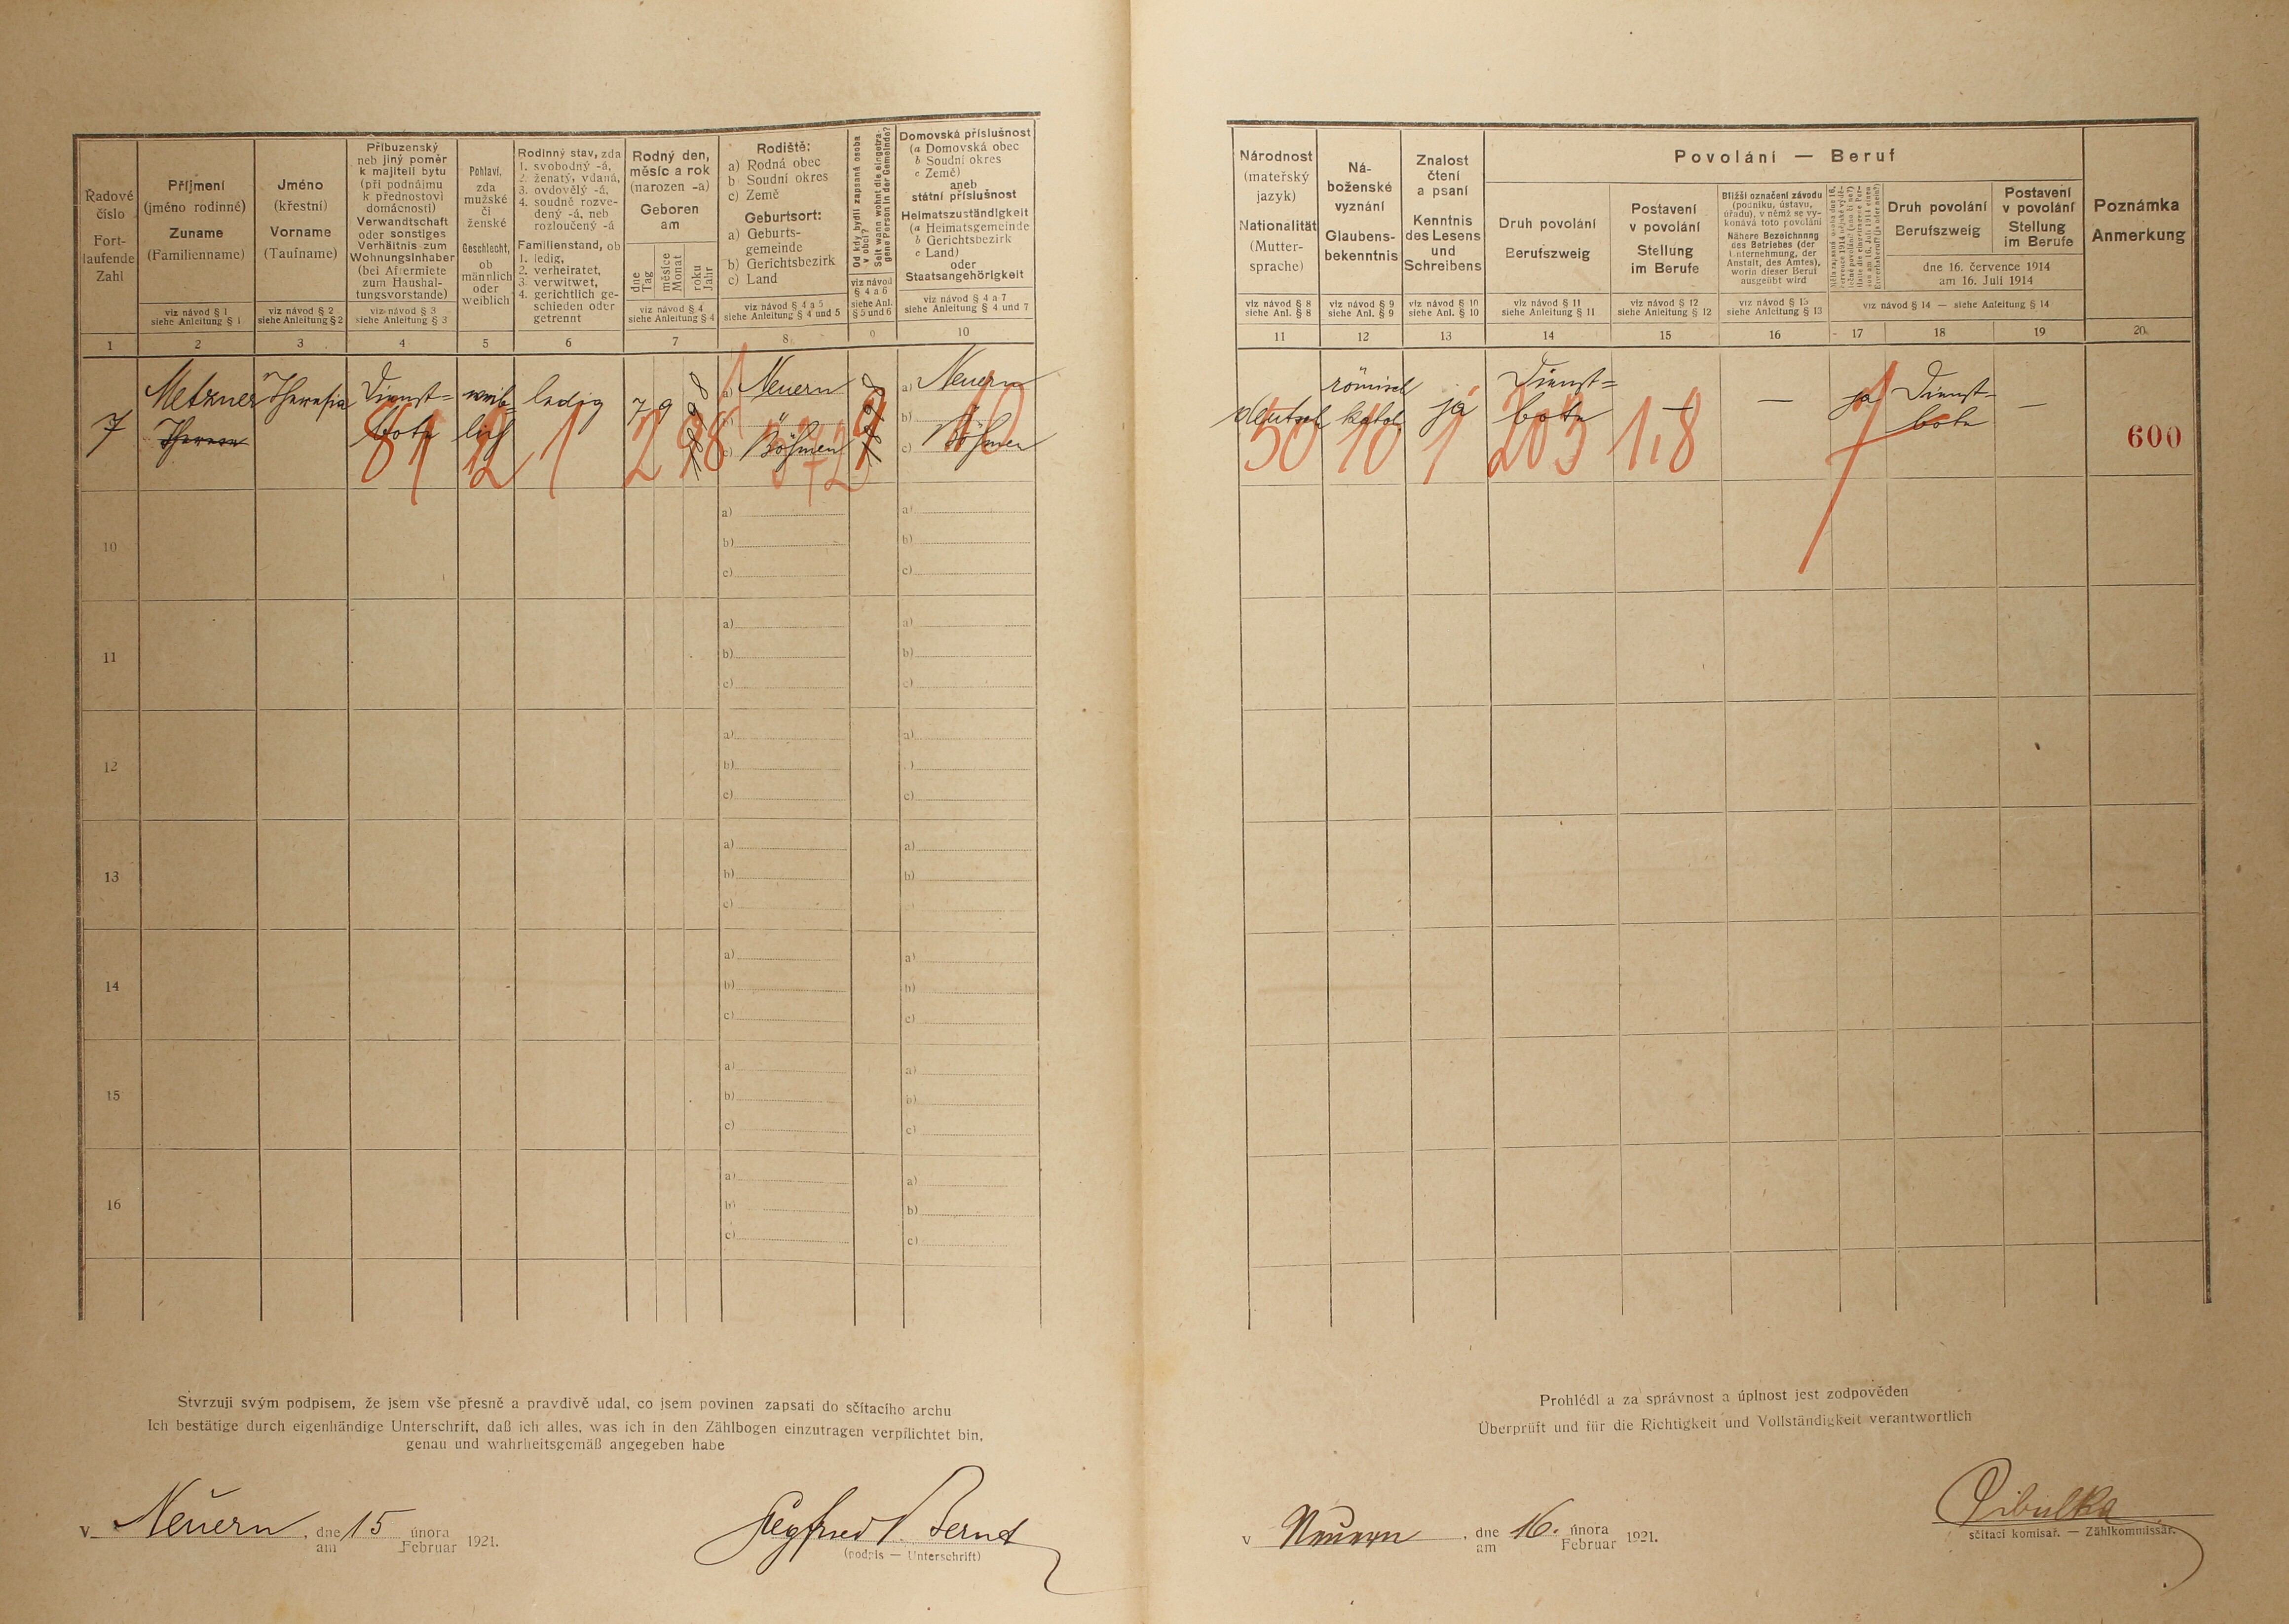 Řadové číslo
Fort-
laufende
Zahl
Příjmení
(jméno rodinné)
Zuname
(Familienname)
viz návod § 1
siehe Anleitung § 1
Jméno
(křestní)
Vorname
(Taufname)
viz návod § 2
siehe Anleitung § 2
Příbuzenský
neb jiný poměr
k majiteli bytu
(při podnájmu
k přednostovi
domácnosti)
Verwandtschaft
oder sonstiges
Verhältnis zum
Wohnungsinhaber
(bei Aftermiete
zum Haushal-
tungsvorstande)
viz návod § 3
siehe Anleitung § 3
Pohlaví,
zda
mužské
či
ženské
Geschlecht,
ob
männlich
oder
weiblich
Rodinný stav, zda
1. svobodný -á,
2. ženatý, vdaná,
3. ovdovělý -á,
4. soudně rozve-
dený -á, neb
rozloučený -á
Familienstand, ob
1. ledig,
2. verheiratet,
3. verwitwet,
4. gerichtlich ge-
schieden oder
getrennt
Rodný den,
měsíc a rok
(narozen -a)
Geboren
am
dne
Tag
měsíce
Monat
roku
Jahr
viz návod § 4
siehe Anleitung § 4
Rodiště:
a) Rodná obec
b Soudní okres
c) Země
Geburtsort:
a) Geburts-
gemeinde
b) Gerichtsbezirk
c) Land
viz návod § 4 a 5
siehe Anleitung § 4 und 5
Od kdy bydlí zapsaná osoba
v obci?
Seit wann wohnt die eingetra-
gene Person in der Gemeinde?
viz návod
§ 4 a 6
siehe Anl.
§ 5 und 6
Domovská příslušnost
(a Domovská obec
b Soudní okres
c Země)
aneb
státní příslušnost
Heimatszuständigkeit
(a Heimatsgemeinde
b Gerichtsbezirk
c Land)
oder
Staatsangehörigkeit
viz návod § 4 a 7
siehe Anleitung § 4 und 7
1 2 3 4 5 6 7 8 9 10
7
Metzner
Theresia
Dienst=
bote
weib=
lich
ledig
7 9 898
a) Neuern
c) Böhmen
a) Neuern
b)
c) Böhmen
81 2 1 2 98 10
10 a) a)
b) b)
c) c)
11 a) a)
b) b)
c) c)
12 a) a)
b) b)
c) c)
13 a) a)
b) b)
c) c)
14 a) a)
b) b)
c) c)
15 a) a)
b) b)
c) c)
16 a) a)
b) b)
c) c)
Stvrzuji svým podpisem, že jsem vše přesně a pravdivě udal, co jsem povinen zapsati do sčítacího archu
Ich bestätige durch eigenhändige Unterschrift, daß ich alles, was ich in den Zählbogen einzutragen verpflichtet bin,
genau und wahrheitsgemäß angegeben habe
v Neuern, dne 15 února 1921.
am Februar
Siegfried Bernt
(podpis — Unterschrift)
Národnost
(mateřský
jazyk)
Nationalität
(Mutter-
sprache)
viz návod § 8
siehe Anl. § 8
Ná-
boženské
vyznání
Glaubens-
bekenntnis
viz návod § 9
siehe Anl. § 9
Znalost
čtení
a psaní
Kenntnis
des Lesens
und
Schreibens
viz návod § 10
siehe Anl. § 10
Povolání — Beruf
Druh povolání
Berufszweig
viz návod § 11
siehe Anleitung § 11
Postavení
v povolání
Stellung
im Berufe
viz návod § 12
siehe Anleitung § 12
Bližší označení závodu
(podniku, ústavu,
úřadu), v němž se vy-
konává toto povolání
Nähere Bezeichnung
des Betriebes (der
Unternehmung, der
Anstalt, des Amtes),
worin dieser Beruf
ausgeübt wird
viz návod § 13
siehe Anleitung § 13
Druh povolání
Berufszweig
Postavení
v povolání
Stellung
im Berufe
dne 16. července 1914
am 16. Juli 1914
viz návod § 14 — siehe Anleitung § 14
Poznámka
Anmerkung
11 12 13 14 15 16 17 18 19 20
deutsch
römisch
kathol.
ja
Dienst=
bote
—
—
ja
Dienst-
bote
—
50 10 1 203 1,8
600
Prohlédl a za správnost a úplnost jest zodpověden
Überprüft und für die Richtigkeit und Vollständigkeit verantwortlich
v Neuern, dne 16. února 1921.
am Februar
Cibulka
sčítací komisař. — Zählkommissär.